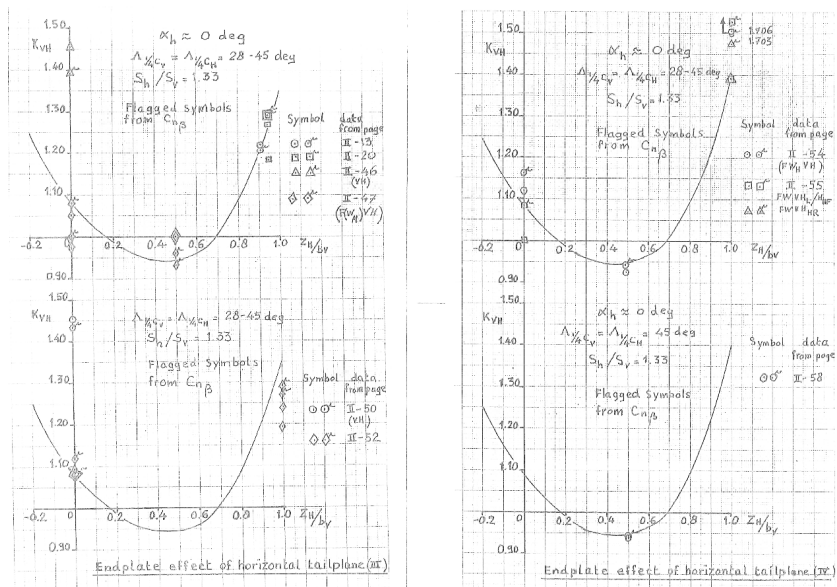 1.50
K_VH
1.40
1.30
1.20
1.10
0.90
α_h ≈ 0 deg
Λ_1/4c_V = Λ_1/4c_H = 28-45 deg
S_h/S_v = 1.33
Flagged Symbols
from C_nβ
Symbol data from page
II-13
II-20
II-46
(VH)
II-47
(F(W_H)VH)
-0.2 0 0.2 0.4 0.6 0.8 1.0 Z_H/b_V
1.50
K_VH
1.40
1.30
1.20
1.10
0.90
Λ_1/4c_V = Λ_1/4c_H = 28-45 deg
S_h/S_v = 1.33
Flagged Symbols
from C_nβ
Symbol data from page
II-50
(VH)
II-52
-0.2 0 0.2 0.4 0.6 0.8 1.0 Z_H/b_V
Endplate effect of horizontal tailplane (III)
1.50
K_VH
1.40
1.30
1.20
1.10
0.90
1.706
1.705
α_h ≈ 0 deg
Λ_1/4c_V = Λ_1/4c_H = 28-45 deg
S_h/S_v = 1.33
Flagged Symbols
from C_nβ
Symbol data from page
II-54
(FW_H VH)
II-55
-0.2 0 0.2 0.4 0.6 0.8 1.0 Z_H/b_V
1.50
K_VH
1.40
1.30
1.20
1.10
0.90
α_h ≈ 0 deg
Λ_1/4c_V = Λ_1/4c_H = 45 deg
S_h/S_v = 1.33
Flagged Symbols
from C_nβ
Symbol data from page
II-58
-0.2 0 0.2 0.4 0.6 0.8 1.0 Z_H/b_V
Endplate effect of horizontal tailplane (IV)